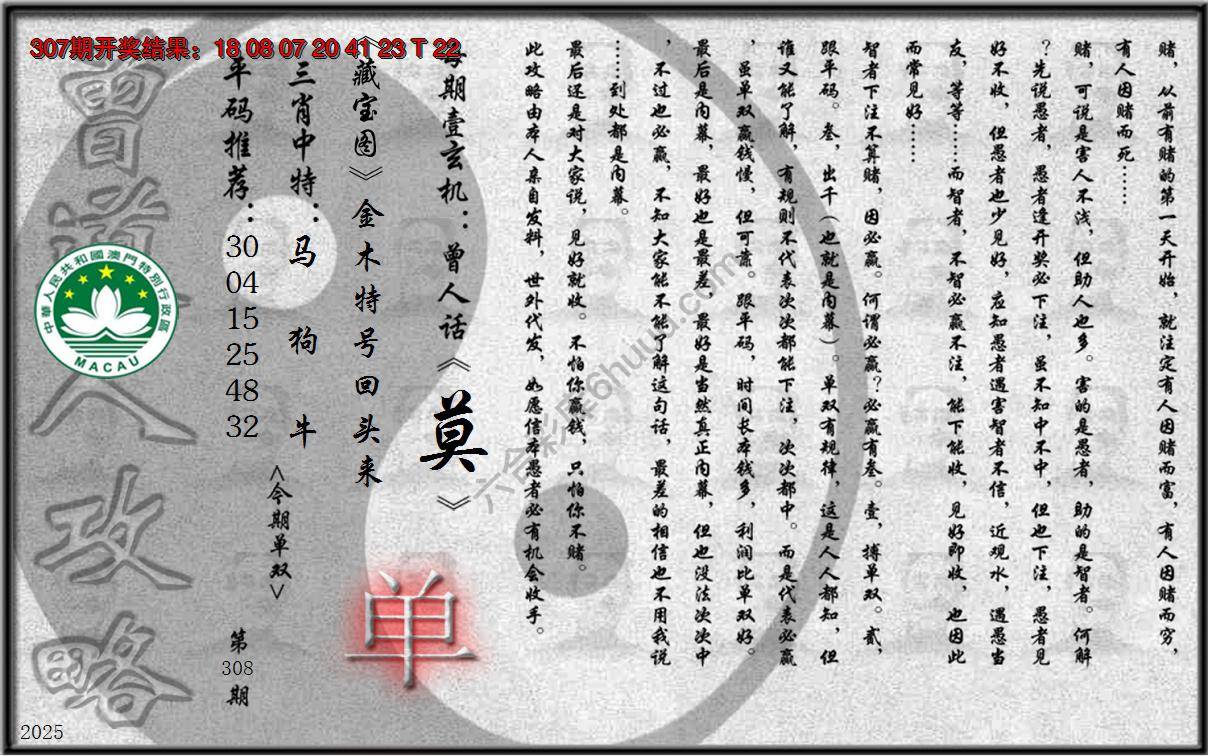 307期开奖结果：18 08 07 20 41 23 T 22
赌，从前有赌的第一天开始，就注定有人因赌而富，有人因赌而穷，
有人因赌而死……
赌，可说是害人不浅，但助人也多。害的是愚者，助的是智者。何解
？先说愚者，愚者逢开奖必下注，虽不知中不中，但也下注，愚者见
好不收，但愚者也少见好，应知愚者遇害智者不信，近观水，遇愚当
友，等等……而智者，不智必赢不注，能下能收，见好即收，也因此
而常见好……
智者下注不算赌，因必赢。何谓必赢？必赢有叁。壹，搏单双。贰，
跟平码。叁，出千（也就是内幕）。单双有规律，这是人人都知，但
谁又能了解，有规则不代表次次都能下注，次次都中。而是代表必赢
，虽单双赢钱慢，但可靠。跟平码，时间长本钱多，利润比单双好。
最后是内幕，最好也是最差，最好是当然真正内幕，但也没法次次中
，不过也必赢，不知大家能不能了解这句话，最差的相信也不用我说
……到处都是内幕。
最后还是对大家说，见好就收。不怕你赢钱，只怕你不赌。
此攻略由本人亲自发料，世外代发，如愿信本愚者必有机会收手。
每期壹玄机：曾人话《莫》
《藏宝图》金木特号回头来
单
三肖中特：马 狗 牛
<今期单双>
平码推荐：30 04 15 25 48 32
第308期
曾道人攻略
中華人民共和國澳門特別行政區
MACAU
六合彩库6huuu.com
2025